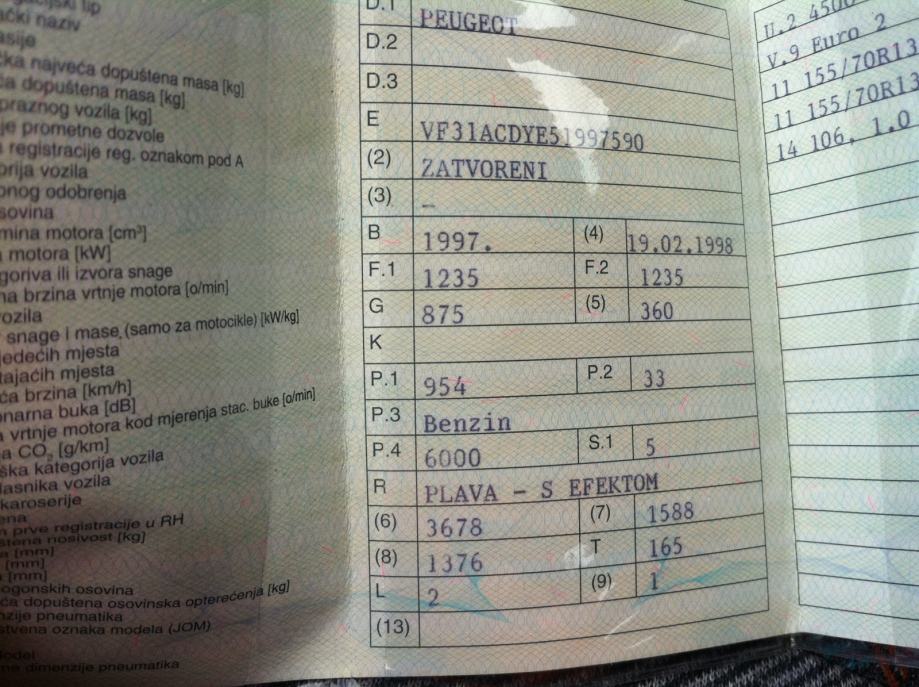 ački naziv
najveća dopuštena masa [kg]
dopuštena masa [kg]
praznog vozila [kg]
je prometne dozvole
registracije reg. oznakom pod A
vozila
odobrenja
motora [cm³]
motora [kW]
goriva ili izvora snage
brzina vrtnje motora [o/min]
snage i mase (samo za motocikle) [kW/kg]
mjesta
mjesta
brzina [km/h]
buka [dB]
vrtnje motora kod mjerenja stac. buke [o/min]
CO₂ [g/km]
kategorija vozila
vozila
karoserije
prve registracije u RH
nosivost [kg]
[mm]
[mm]
[mm]
osovina
dopuštena osovinska opterećenja [kg]
pneumatika
oznaka modela (JOM)
dimenzije pneumatika
D.1 PEUGEOT
D.2
D.3
E VF31ACDYE51997590
(2) ZATVORENI
(3) –
B 1997. (4) 19.02.1998
F.1 1235 F.2 1235
G 875 (5) 360
K
P.1 954 P.2 33
P.3 Benzin
P.4 6000 S.1 5
R PLAVA - S EFEKTOM
(6) 3678 (7) 1588
(8) 1376 T 165
L 2 (9) 1
(13)
U.2 4500
V.9 Euro 2
11 155/70R13
11 155/70R13
14 106, 1.0